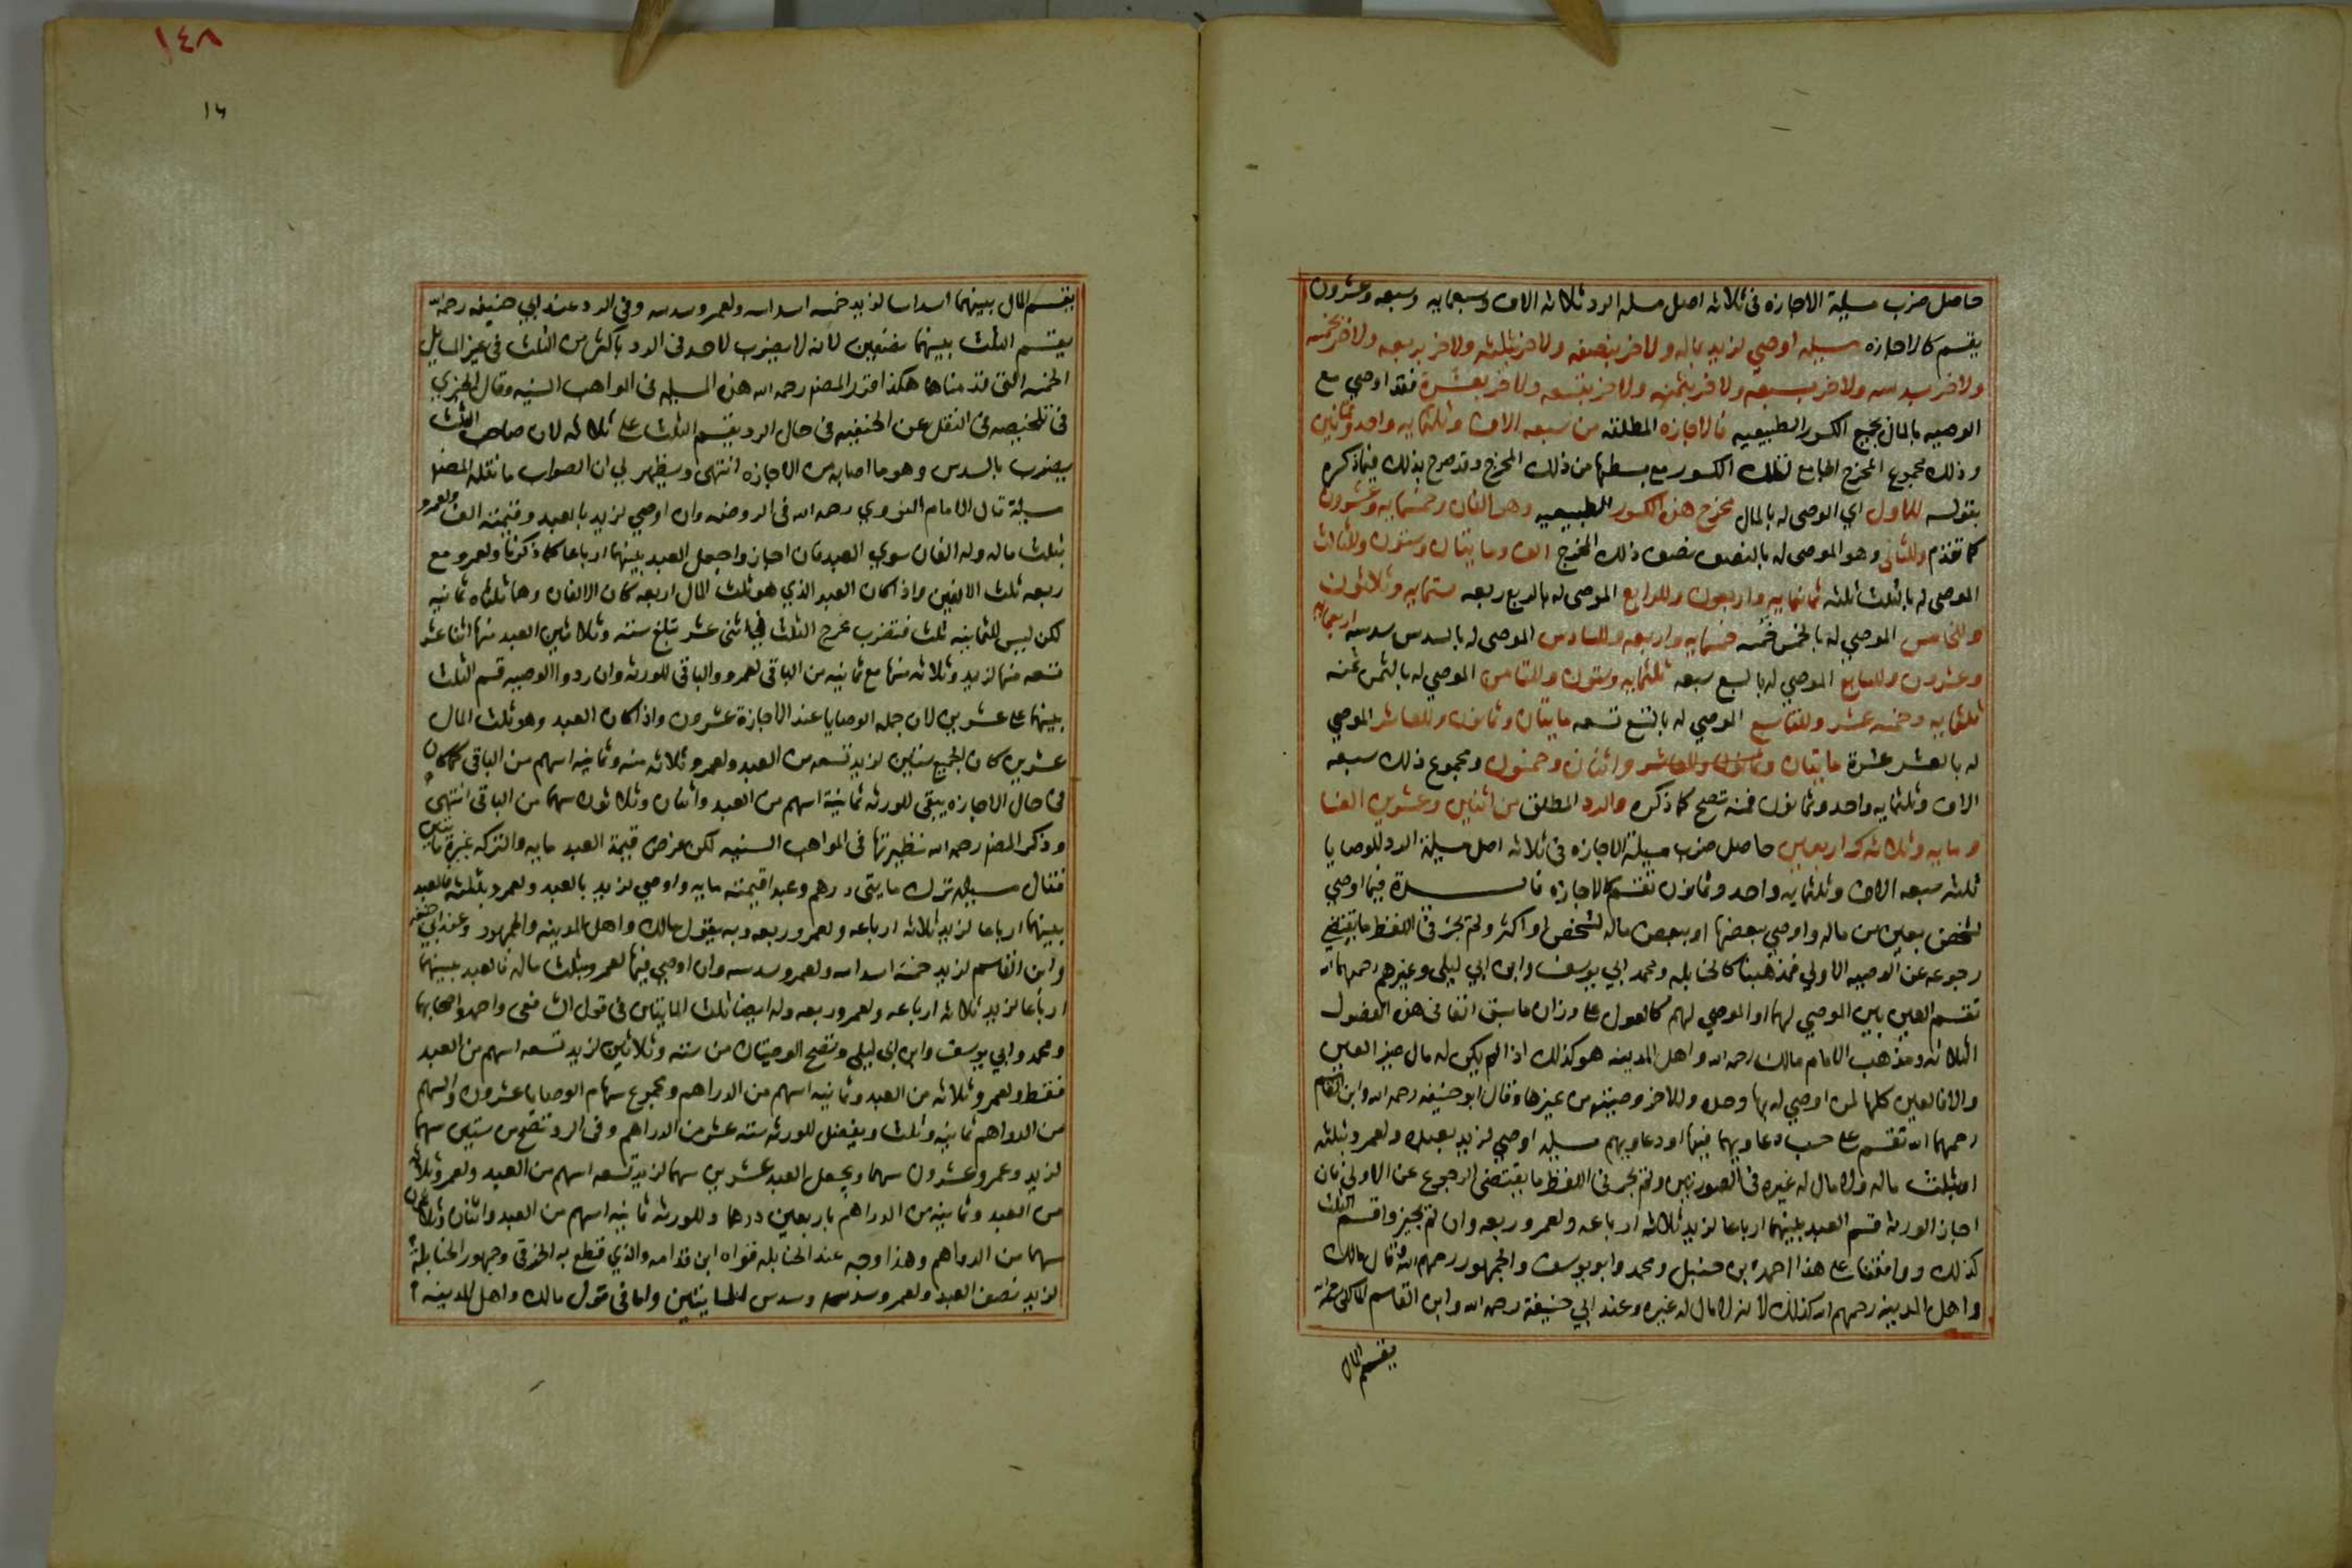 حاصل ضرب مسيلة الاجازه فى ثلاثه اصل مسله الرد ثلاثه الاف وسبعمايه وسبعه وعشرون
يقسم كالاجازه مسيله اوصي لزيد بماله ولاخر بنصفه ولاخر بثلثه ولاخر بربعه ولاخر بخمسه
ولاخر بسدسه ولاخر بسبعه ولاخر بثمنه ولاخر بتسعه ولاخر بعشرة فقد اوصي مع
الوصيه بالمال بجميع الكسور الطبيعيه فالاجازه المطلقه من سبعه الاف وثلثمايه واحد وثمانين
وذلك مجموع المخرج الجامع لتلك الكسور مع بسطها من ذلك المخرج وقد صرح بذلك فيما ذكره
بقوله للاول اي الموصى له بالمال مخرج هذه الكسور الطبيعيه وهو الفان وخمسمايه وعشرون
كما تقدم وللثانى وهو الموصى له بالنصف نصف ذلك المخرج الف ومايتان وستون وللثالث
الموصى له بالثلث ثلثه ثمانمايه واربعون وللرابع الموصى له بالربع ربعه ستمايه وثلاثون
وللخامس الموصي له بالخمس خمسه خمسمايه واربعه وللسادس الموصى له بالسدس سدسه اربعمايه
وعشرون وللسابع الموصي له بالسبع سبعه ثلثمايه وستون وللثامن الموصي له بالثمن ثمنه
ثلثمايه وخمسه عشر وللتاسع الموصي له بالتسع تسعه مايتان وثمانون وللعاشر الموصي
له بالعشر عشرة مايتان وثمانون وللعاشر واثنان وخمسون ومجموع ذلك سبعه
الاف وثلثمايه واحد وثمانون فمنه تصح كما ذكره والرد المطلق من اثنين وعشرين الفا
ومايه وثلاثه واربعين حاصل ضرب مسيلة الاجازه فى ثلاثه اصل مسيلة الرد للوصايا
ثلثه سبعه الاف وثلثمايه واحد وثمانون تقسم كالاجازه فايدة فيما اوصي
لشخص بعين من ماله واوصي ببعضها او ببعض ماله لشخص او اكثر ولم يجر فى اللفظ ما يقتضي
رجوعه عن الوصيه الاولي فمذهبنا كالحنابله ومحمد ابي يوسف وابن ابي ليلى وغيرهم رحمهم الله
تقسم العين بين الموصي لهما او الموصي لهم كالعول على وزان ما سبق انفا فى هذه الفصول
الثلاثه ومذهب الامام مالك رحمه الله واهل المدينه هو كذلك اذا لم يكن له مال غير العين
والا فالعين كلها لمن اوصي له بها وحده وللاخر وصيته من غيرها وقال ابو حنيفه رحمه الله وابن القاسم
رحمهما الله تقسم على حساب دعاويهما فيها او دعاويهم مسيله اوصي لزيد بعبده ولعمرو بثلثه
او بثلث ماله ولا مال له غيره فى الصورتين ولم يجر فى اللفظ ما يقتضى الرجوع عن الاولى فان
اجاز الورثه قسم العبد بينهما ارباعا لزيد ثلاثه ارباعه ولعمرو ربعه وان لم يجيزوا قسم الثلث
كذلك ووافقنا على هذا احمد بن حنبل ومحمد وابو يوسف والجمهور رحمهم الله وقال مالك
واهل المدينه رحمهم الله كذلك لانه لا مال له غيره وعند ابي حنيفة رحمه الله وابن القاسم المالكى رحمه الله
يقسم المال
١٤٨
يقسم المال بينهما اسداسا لزيد خمسه اسداسه ولعمرو سدسه وفى الرد عند ابي حنيفه رحمه الله
يقسم الثلث بينهما نصفين لانه لا يضرب لاحد فى الرد باكثر من الثلث فى غير المسايل
الخمسه التى قدمناها هكذا قرر المصنف رحمه الله هذه المسيله فى المواهب السنيه وقال الخبري
فى تلخيصه فى النقل عن الحنفيه فى حال الرد يقسم الثلث على ثلاثه لان صاحب الثلث
يضرب بالسدس وهو ما اصابه من الاجازه انتهى ويظهر لي ان الصواب ما نقله المصنف
مسيلة قال الامام النووي رحمه الله فى الروضه وان اوصي لزيد بالعبد وقيمته الف ولعمرو
بثلث ماله وله الفان سوي العبد فان اجازوا جعل العبد بينهما ارباعا كما ذكرنا ولعمرو مع
ربعه ثلث الالفين واذا كان العبد الذي هو ثلث المال اربعه كان الالفان وهما ثلثاه ثمانيه
لكن ليس للثمانيه ثلث فتضرب مخرج الثلث فى اثنى عشر تبلغ سته وثلاثين العبد منها اثنا عشر
تسعه منها لزيد وثلاثه منها مع ثمانيه من الباقى لعمرو والباقى للورثه وان ردوا الوصيه قسم الثلث
بينهما على عشرين لان جمله الوصايا عند الاجازة عشرون واذا كان العبد وهو ثلث المال
عشرين كان الجميع ستين لزيد تسعه من العبد ولعمرو ثلاثه منه وثمانيه اسهم من الباقى كما كان
فى حال الاجازه يبقى للورثه ثمانية اسهم من العبد واثنان وثلاثون سهما من الباقى انتهى
وذكر المصنف رحمه الله نظيرتها فى المواهب السنيه لكن فرض قيمة العبد مايه والتركه غيره مايتين
فقال مسيله ترك مايتى درهم وعبدا قيمته مايه واوصي لزيد بالعبد ولعمرو بثلثه فالعبد
بينهما ارباعا لزيد ثلاثه ارباعه ولعمرو ربعه وبه يقول مالك واهل المدينه والجمهور وعند ابي حنيفه
وابن القاسم لزيد خمسه اسداسه ولعمرو سدسه وان اوصي فيها لعمرو بثلث ماله فالعبد بينهما
ارباعا لزيد ثلاثه ارباعه ولعمرو ربعه وله ايضا ثلث المايتين فى قول الشافعى واحمد واصحابهما
ومحمد وابي يوسف وابن ابي ليلى وتصح الوصيتان من سته وثلاثين لزيد تسعه اسهم من العبد
فقط ولعمرو ثلاثه من العبد وثمانيه اسهم من الدراهم ومجموع سهام الوصايا عشرون والسهم
من الدراهم ثمانيه وثلث ويفضل للورثه سته عشر من الدراهم وفى الرد تصح من ستين سهما
لزيد وعمرو عشرون سهما ويجعل العبد عشرين سهما لزيد تسعه اسهم من العبد ولعمرو ثلاثه
من العبد وثمانيه من الدراهم باربعين درهما وللورثه ثمانيه اسهم من العبد واثنان وثلاثون
سهما من الدراهم وهذا وجه عند الحنابله قواه ابن قدامه والذي قطع به الخرقى وجمهور الحنابلة
لزيد نصف العبد ولعمرو سدسه وسدس المايتين واما فى قول مالك واهل المدينه